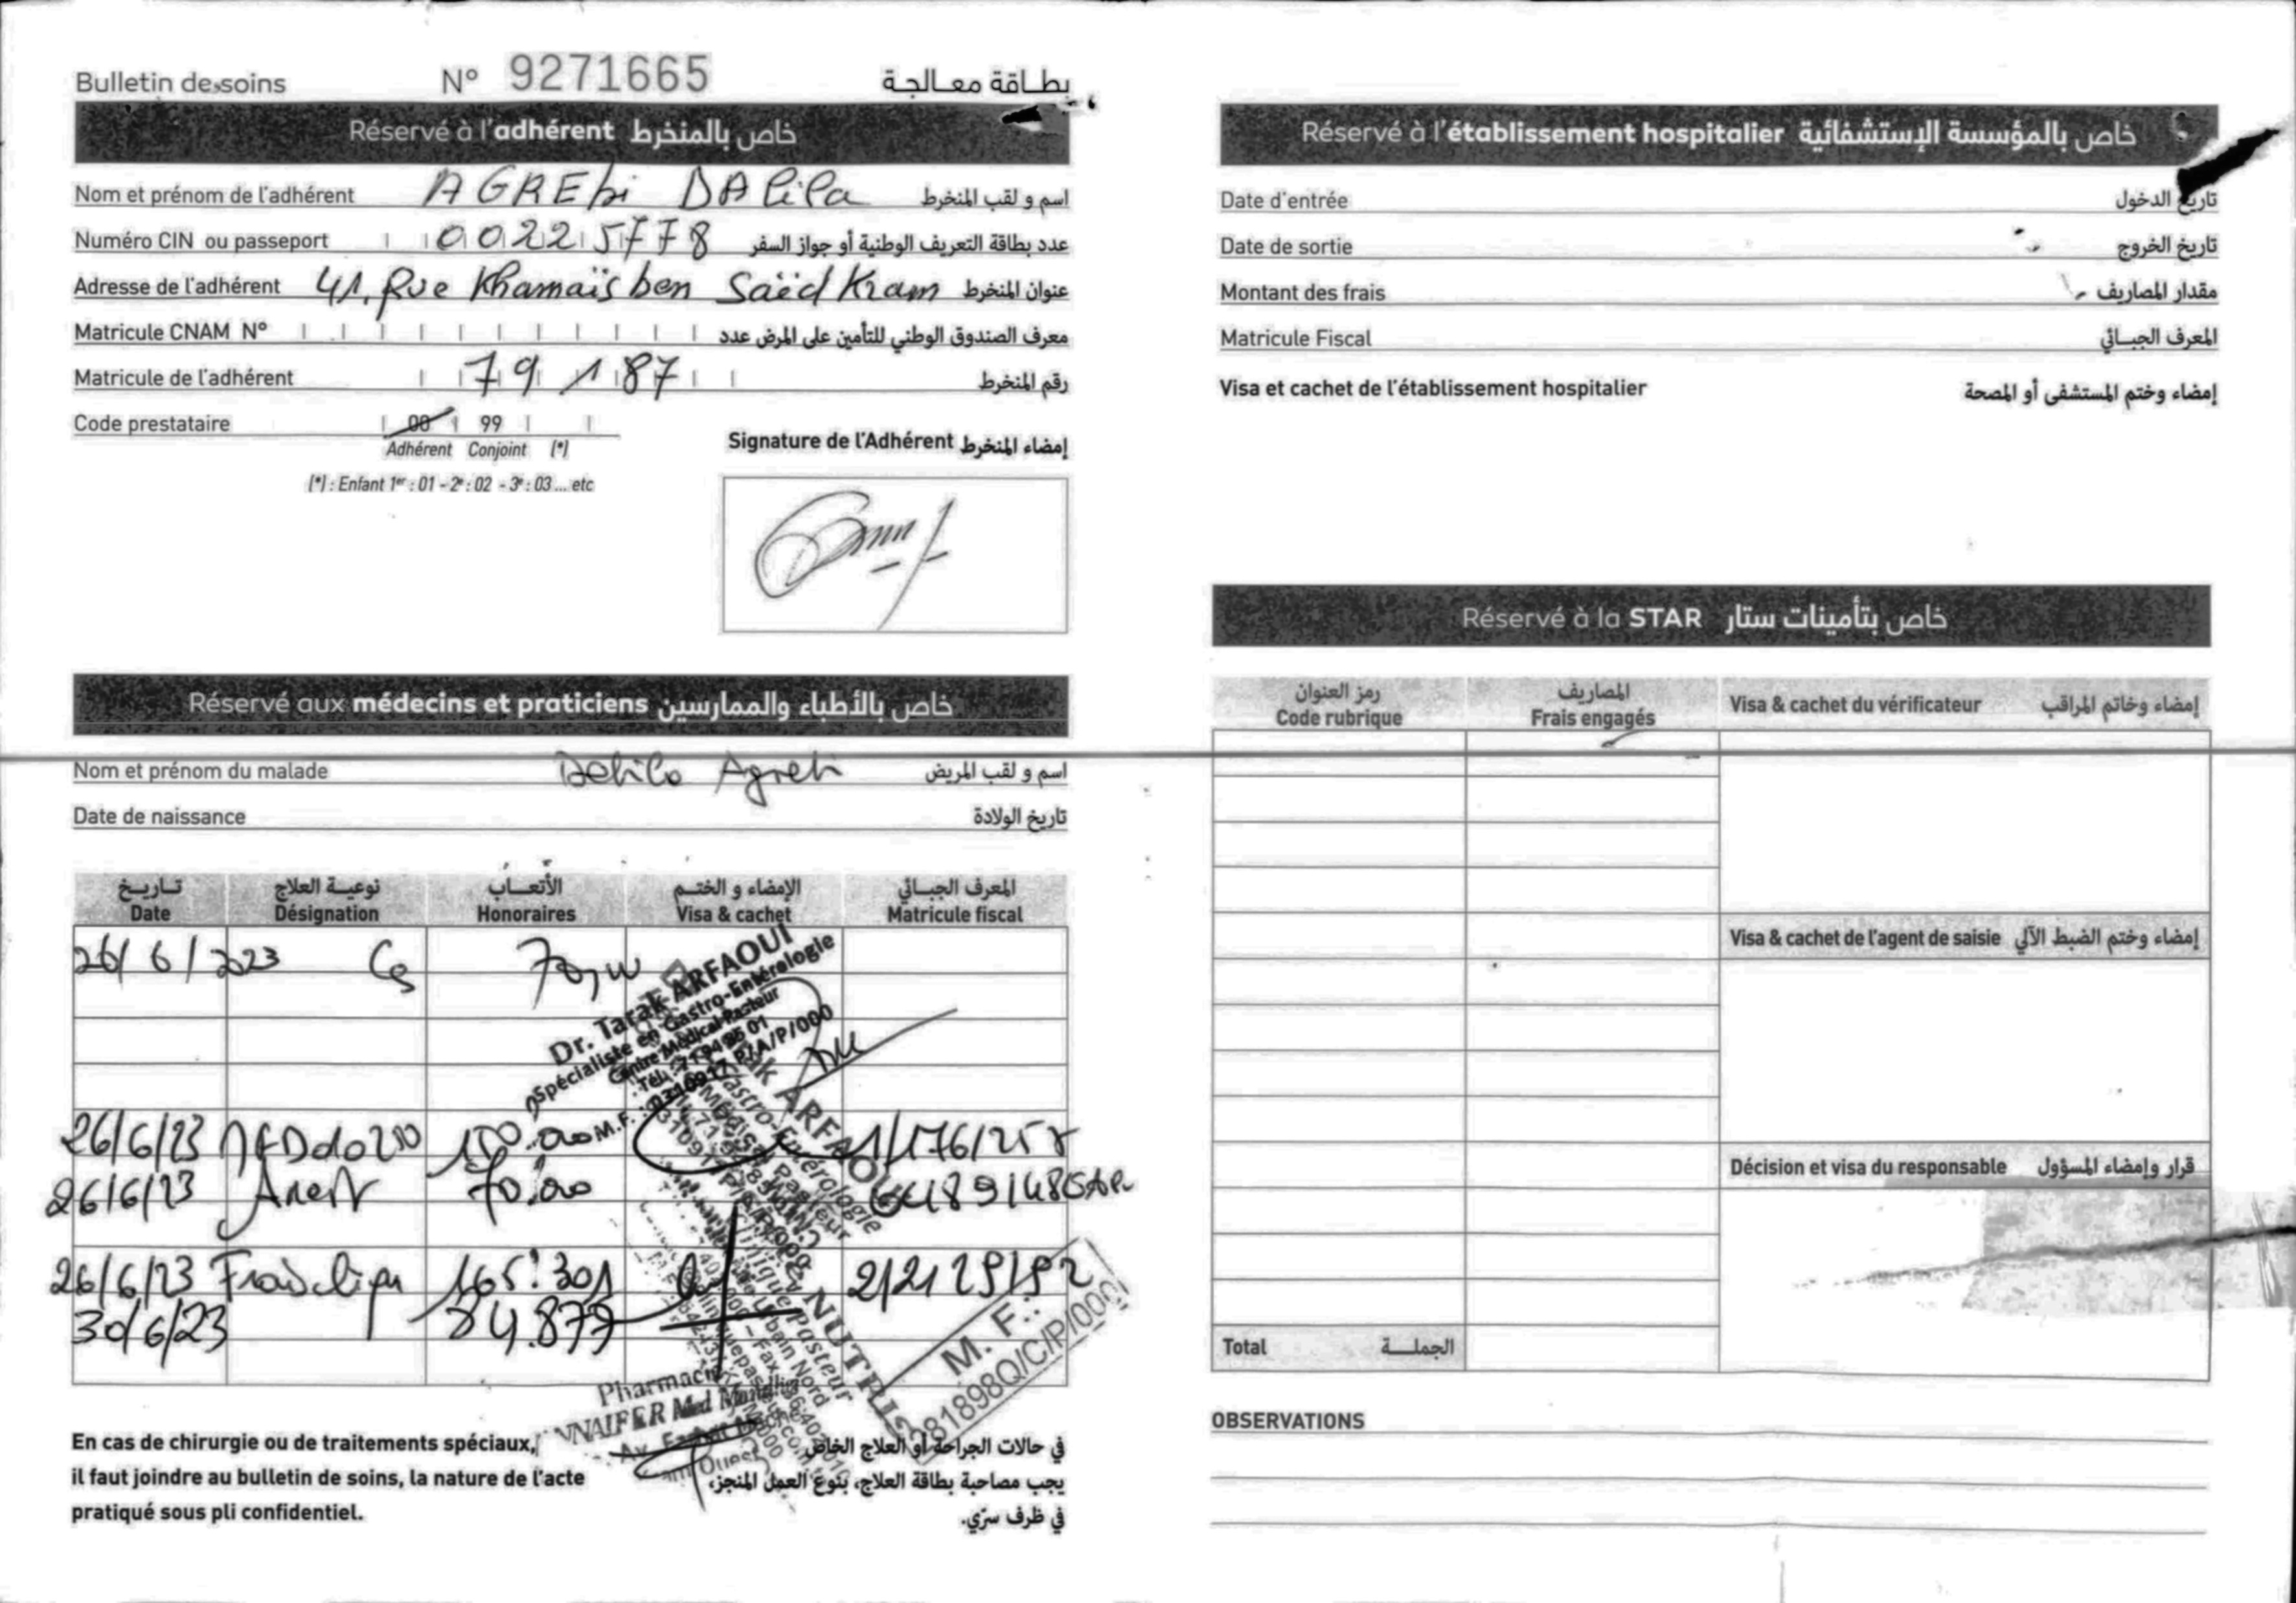 Bulletin de soins N° 9271665 بطاقة معالجة
Réservé à l'adhérent خاص بالمنخرط
Nom et prénom de l'adhérent AGREbi DAlila اسم و لقب المنخرط
Numéro CIN ou passeport 00225778 عدد بطاقة التعريف الوطنية أو جواز السفر
Adresse de l'adhérent 41, Rue Khamaïs ben Saëd Kram عنوان المنخرط
Matricule CNAM N° معرف الصندوق الوطني للتأمين على المرض عدد
Matricule de l'adhérent 79187 رقم المنخرط
Code prestataire 00 99
Adhérent Conjoint (*)
(*) : Enfant 1er : 01 - 2e : 02 - 3e : 03 ... etc
Signature de l'Adhérent إمضاء المنخرط
Réservé aux médecins et praticiens خاص بالأطباء والممارسين
Nom et prénom du malade Dalila Agreb اسم و لقب المريض
Date de naissance تاريخ الولادة
تاريخ نوعية العلاج الأتعاب الإمضاء و الختم المعرف الجبائي
Date Désignation Honoraires Visa & cachet Matricule fiscal
26/6/2023 Cs
Dr. Tarak ARFAOUI
Spécialiste en Gastro-Entérologie
Centre Médical Pasteur
26/6/23 1/176/258
26/6/23 70.000
26/6/23 Frais 165.301 2/2129/92
30/6/23 84.879
M. F.:
Pharmacie
En cas de chirurgie ou de traitements spéciaux,
il faut joindre au bulletin de soins, la nature de l'acte
pratiqué sous pli confidentiel.
في حالات الجراحة أو العلاج الخاص
يجب مصاحبة بطاقة العلاج، بنوع العمل المنجز،
في ظرف سرّي.
Réservé à l'établissement hospitalier خاص بالمؤسسة الإستشفائية
Date d'entrée تاريخ الدخول
Date de sortie تاريخ الخروج
Montant des frais مقدار المصاريف
Matricule Fiscal المعرف الجبائي
Visa et cachet de l'établissement hospitalier إمضاء وختم المستشفى أو المصحة
Réservé à la STAR خاص بتأمينات ستار
رمز العنوان المصاريف
Code rubrique Frais engagés Visa & cachet du vérificateur إمضاء وخاتم المراقب
Visa & cachet de l'agent de saisie إمضاء وختم الضبط الآلي
Décision et visa du responsable قرار وإمضاء المسؤول
Total الجملة
OBSERVATIONS